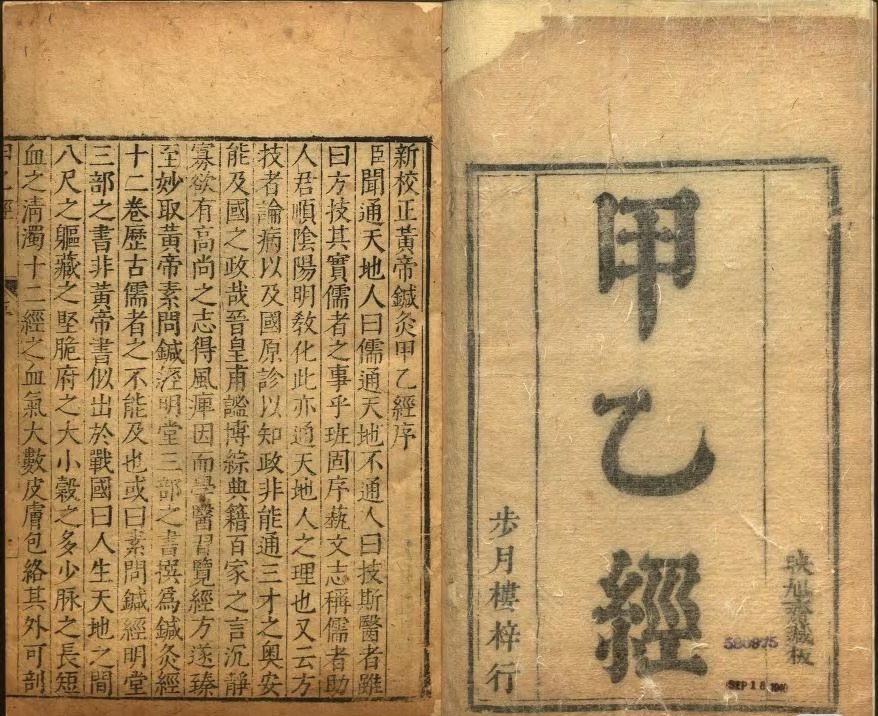 映旭齋藏板
甲乙經
步月樓梓行
580975
SEP
新校正黃帝鍼灸甲乙經序
臣聞通天地人曰儒通天地不通人曰技斯醫者雖
曰方技其實儒者之事乎班固序蓺文志稱儒者助
人君順陰陽明教化此亦通天地人之理也又云方
技者論病以及國原診以知政非能通三才之奥安
能及國之政哉晉皇甫謐博綜典籍百家之言沉靜
寡欲有高尚之志得風痺因而學醫習覽經方遂臻
至妙取黃帝素問鍼經明堂三部之書撰爲鍼灸經
十二卷歷古儒者之不能及也或曰素問鍼經明堂
三部之書非黃帝書似出於戰國曰人生天地之間
八尺之軀藏之堅脆府之大小穀之多少脉之長短
血之清濁十二經之血氣大數皮膚包絡其外可剖
甲乙經